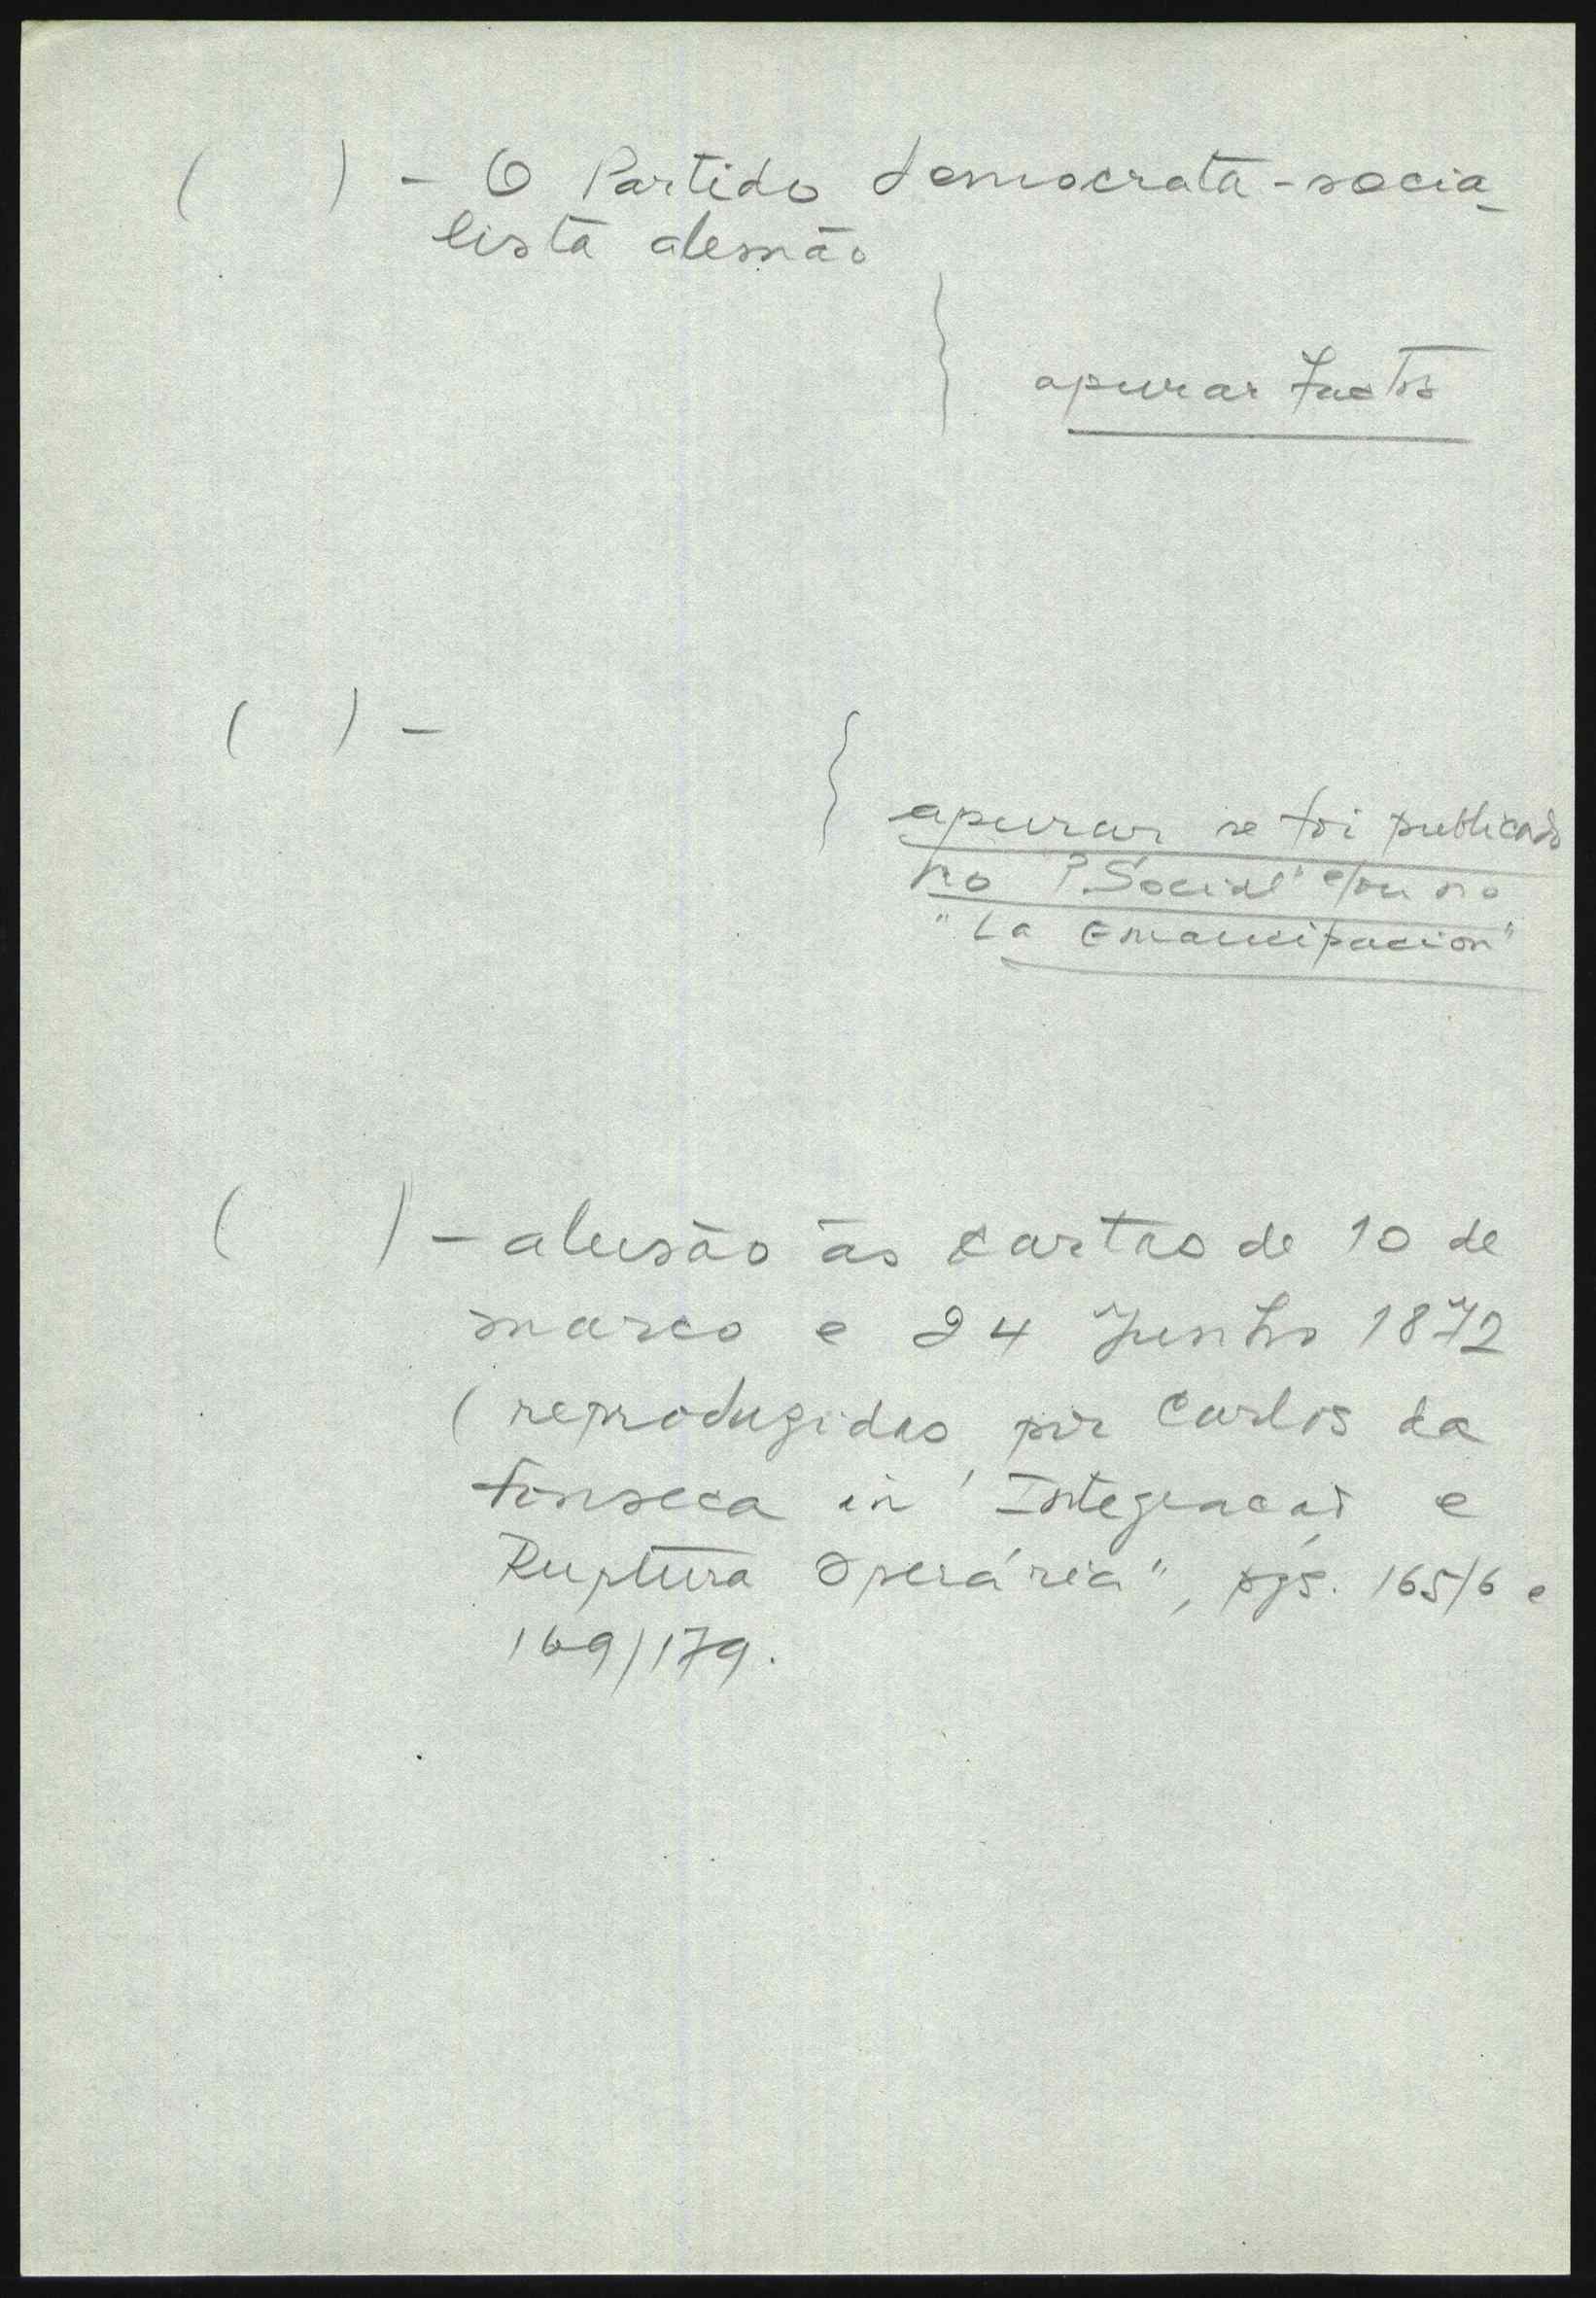 (   ) - O Partido democrata-socia-
lista alemão
} apurar factos
(   ) -
{ apurar se foi publicado
no P. Social e/ou no
"La Emancipacion"
(   ) - alusão às cartas de 10 de
março e 24 Junho 1872
(reproduzidas por Carlos da
Fonseca in "Integração e
Ruptura Operária", pgs. 165/6 e
169/179.